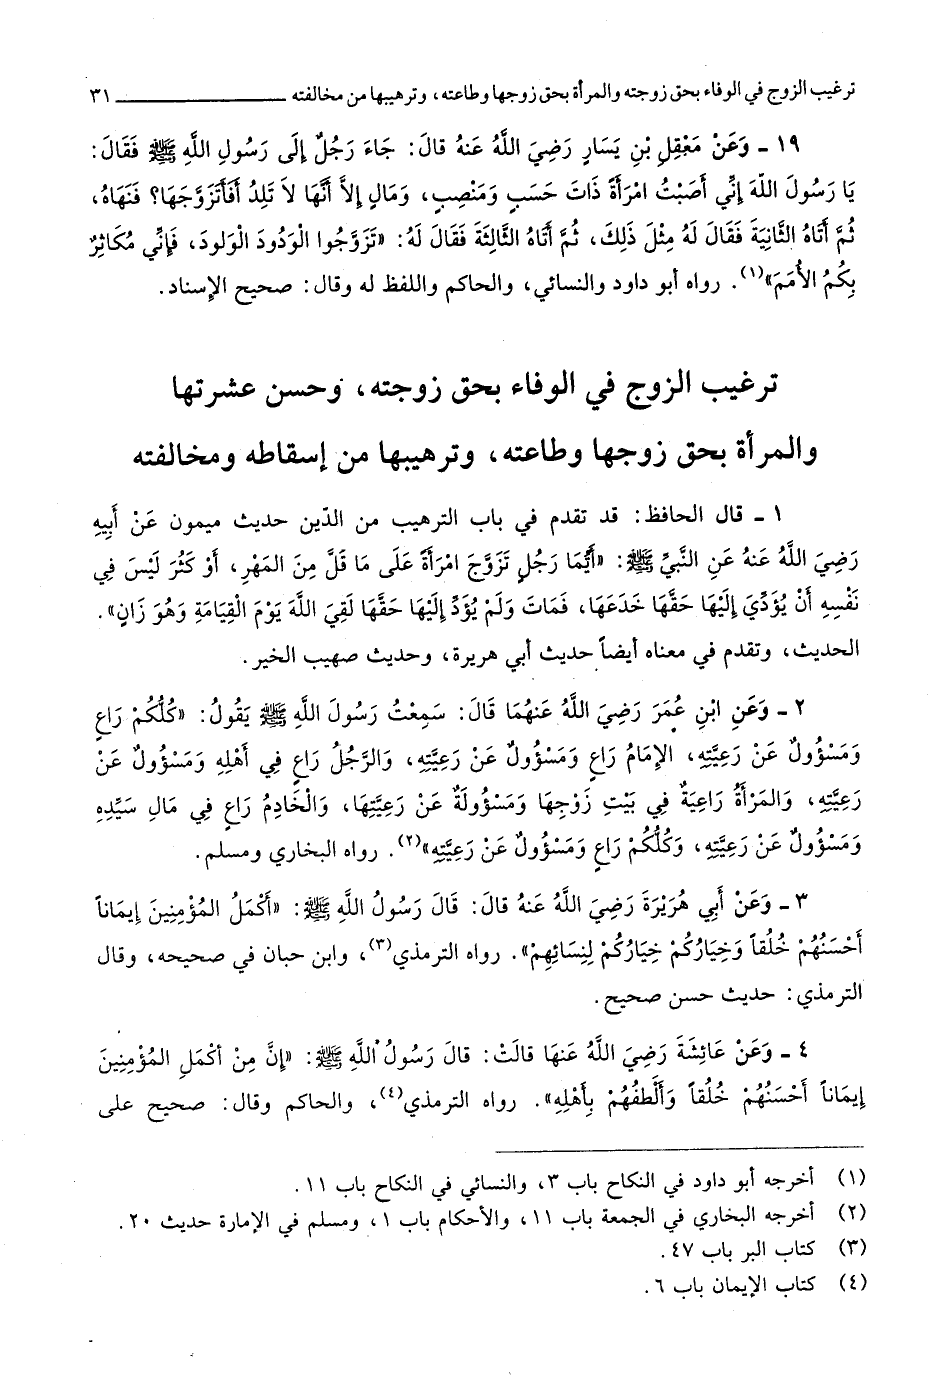 ترغيب الزوج في الوفاء بحق زوجته والمرأة بحق زوجها وطاعته، وترهيبها من مخالفته ــــــــــــــــ ٣١
١٩ ـ وَعَنْ مَعْقِلِ بْنِ يَسَارٍ رَضِيَ اللَّهُ عَنْهُ قالَ: جَاءَ رَجُلٌ إلَى رَسُولِ اللَّهِ ﷺ فَقَالَ:
يَا رَسُولَ اللَّهِ إنِّي أَصَبْتُ امْرَأَةً ذَاتَ حَسَبٍ وَمَنْصِبٍ، وَمَالٍ إلاَّ أَنَّهَا لاَ تَلِدُ أَفَأَتَزَوَّجَهَا؟ فَنَهَاهُ،
ثُمَّ أَتَاهُ الثَّانِيَةَ فَقَالَ لَهُ مِثْلَ ذلِكَ، ثُمَّ أَتَاهُ الثَّالِثَةَ فَقَالَ لَهُ: «تَزَوَّجُوا الْوَدُودَ الْوَلودَ، فَإنِّي مُكَاثِرٌ
بِكُمُ الأُمَمَ»(١). رواه أبو داود والنسائي، والحاكم واللفظ له وقال: صحيح الإسناد.
ترغيب الزوج في الوفاء بحق زوجته، وحسن عشرتها
والمرأة بحق زوجها وطاعته، وترهيبها من إسقاطه ومخالفته
١ ـ قال الحافظ: قد تقدم في باب الترهيب من الدّين حديث ميمون عَنْ أَبِيهِ
رَضِيَ اللَّهُ عَنْهُ عَنِ النَّبيِّ ﷺ: «أَيُّمَا رَجُلٍ تَزَوَّجَ امْرَأَةً عَلَى مَا قَلَّ مِنَ المَهْرِ، أَوْ كَثُرَ لَيْسَ فِي
نَفْسِهِ أَنْ يُؤَدِّيَ إلَيْهَا حَقَّهَا خَدَعَهَا، فَمَاتَ وَلَمْ يُؤَدِّ إلَيْهَا حَقَّهَا لَقِيَ اللَّهَ يَوْمَ الْقِيَامَةِ وَهُوَ زَانٍ».
الحديث، وتقدم في معناه أيضاً حديث أبي هريرة، وحديث صهيب الخير.
٢ ـ وَعَنِ ابْنِ عُمَرَ رَضِيَ اللَّهُ عَنْهُمَا قَالَ: سَمِعْتُ رَسُولَ اللَّهِ ﷺ يَقُولُ: «كُلُّكُمْ رَاعٍ
وَمَسْؤُولٌ عَنْ رَعِيَّتِهِ، الإمَامُ رَاعٍ وَمَسْؤُولٌ عَنْ رَعِيَّتِهِ، وَالرَّجُلُ رَاعٍ فِي أَهْلِهِ وَمَسْؤُولٌ عَنْ
رَعِيَّتِهِ، وَالمَرْأَةُ رَاعِيَةٌ فِي بَيْتِ زَوْجِهَا وَمَسْؤُولَةٌ عَنْ رَعِيَّتِهَا، وَالْخَادِمُ رَاعٍ فِي مَالِ سَيِّدِهِ
وَمَسْؤُولٌ عَنْ رَعِيَّتِهِ، وَكُلُّكُمْ رَاعٍ وَمَسْؤُولٌ عَنْ رَعِيَّتِهِ»(٢). رواه البخاري ومسلم.
٣ ـ وَعَنْ أَبِي هُرَيْرَةَ رَضِيَ اللَّهُ عَنْهُ قالَ: قَالَ رَسُولُ اللَّهِ ﷺ: «أَكْمَلُ المُؤْمِنِينَ إيمَاناً
أَحْسَنُهُمْ خُلُقاً وَخِيَارُكُمْ خِيَارُكُمْ لِنِسَائِهِمْ». رواه الترمذي(٣)، وابن حبان في صحيحه، وقال
الترمذي: حديث حسن صحيح.
٤ ـ وَعَنْ عَائِشَةَ رَضِيَ اللَّهُ عَنهَا قالَتْ: قالَ رَسُولُ اللَّهِ ﷺ: «إنَّ مِنْ أكْمَلِ المُؤْمِنِينَ
إيمَاناً أَحْسَنُهُمْ خُلُقاً وَأَلْطَفُهُمْ بِأَهْلِهِ». رواه الترمذي(٤)، والحاكم وقال: صحيح على
(١) أخرجه أبو داود في النكاح باب ٣، والنسائي في النكاح باب ١١.
(٢) أخرجه البخاري في الجمعة باب ١١، والأحكام باب ١، ومسلم في الإمارة حديث ٢٠.
(٣) كتاب البر باب ٤٧.
(٤) كتاب الإيمان باب ٦.